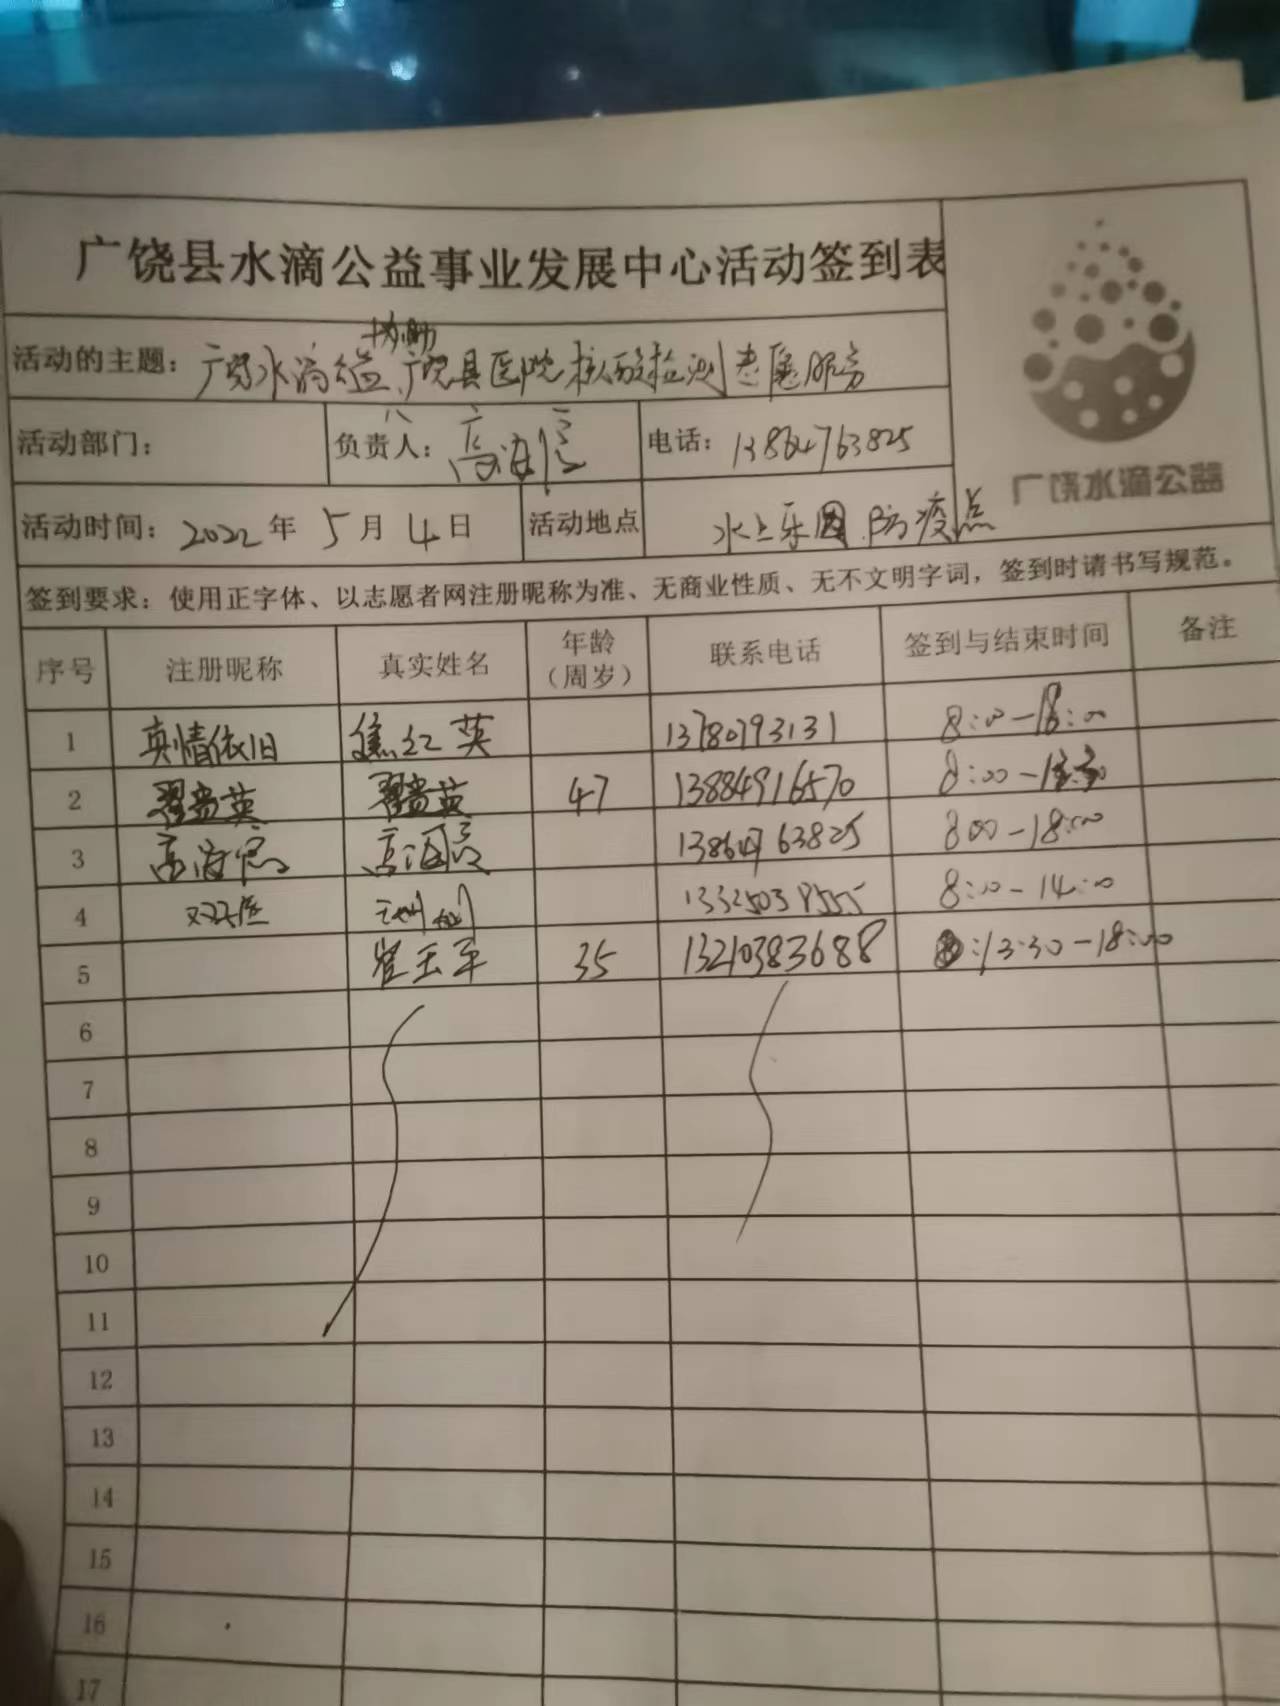 广饶县水滴公益事业发展中心活动签到表
活动的主题：广饶水滴公益协助广饶县医院核酸检测志愿服务
活动部门： 负责人：高海信 电话：13864763825
广饶水滴公益
活动时间：2022年5月4日 活动地点 水上乐园防疫点
签到要求：使用正字体、以志愿者网注册昵称为准、无商业性质、无不文明字词，签到时请书写规范。
序号 注册昵称 真实姓名 年龄（周岁） 联系电话 签到与结束时间 备注
1 真情依旧 焦红英 13780793131 8:00-18:00
2 翟贵英 翟贵英 47 13884916570 8:00-
3 高海信 高海信 13864763825 800-18:00
4 8:00-14:00
5 崔玉平 35 13210383688 13:30-18:00
6
7
8
9
10
11
12
13
14
15
16
17